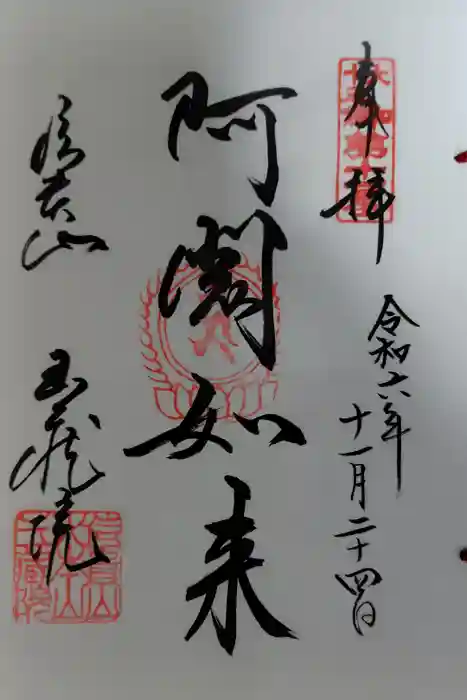 奉拝
令和六年
十一月二十四日
阿閦如来
信貴山
玉蔵院